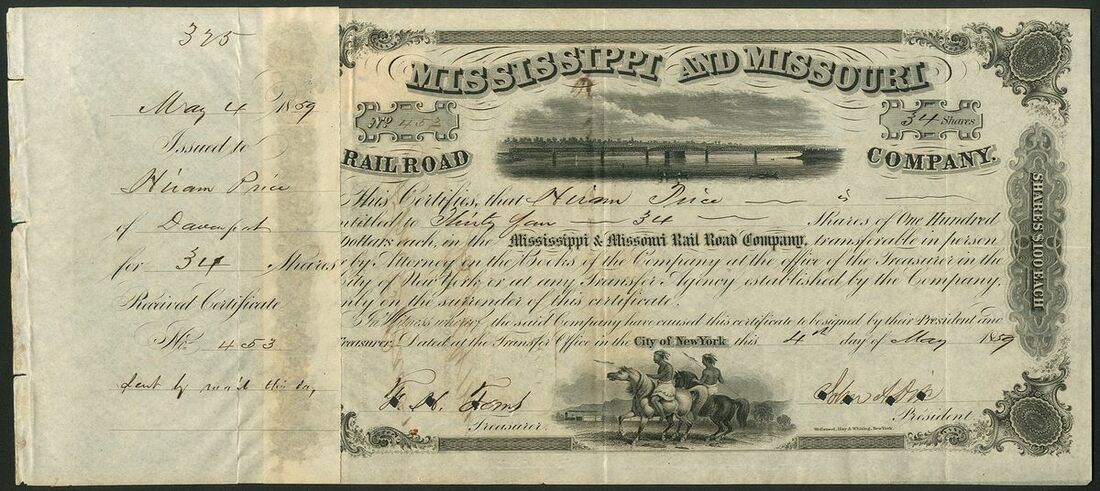 325
May 4 1859
Issued to
Hiram Price
of Davenport
for 34 Shares
Received Certificate
No. 453
MISSISSIPPI AND MISSOURI
No 453
34 Shares
RAIL ROAD
COMPANY.
This Certifies, that Hiram Price is
entitled to Thirty four 34 Shares of One Hundred
Dollars each, in the Mississippi & Missouri Rail Road Company, transferable in person
or by Attorney on the Books of the Company at the office of the Treasurer in the
City of New York or at any Transfer Agency established by the Company,
only on the surrender of this certificate.
In Witness whereof the said Company have caused this certificate to be signed by their President and
Treasurer. Dated at the Transfer Office in the City of New York this 4th day of May 1859
Treasurer.
John A Dix
President
SHARES $100 EACH